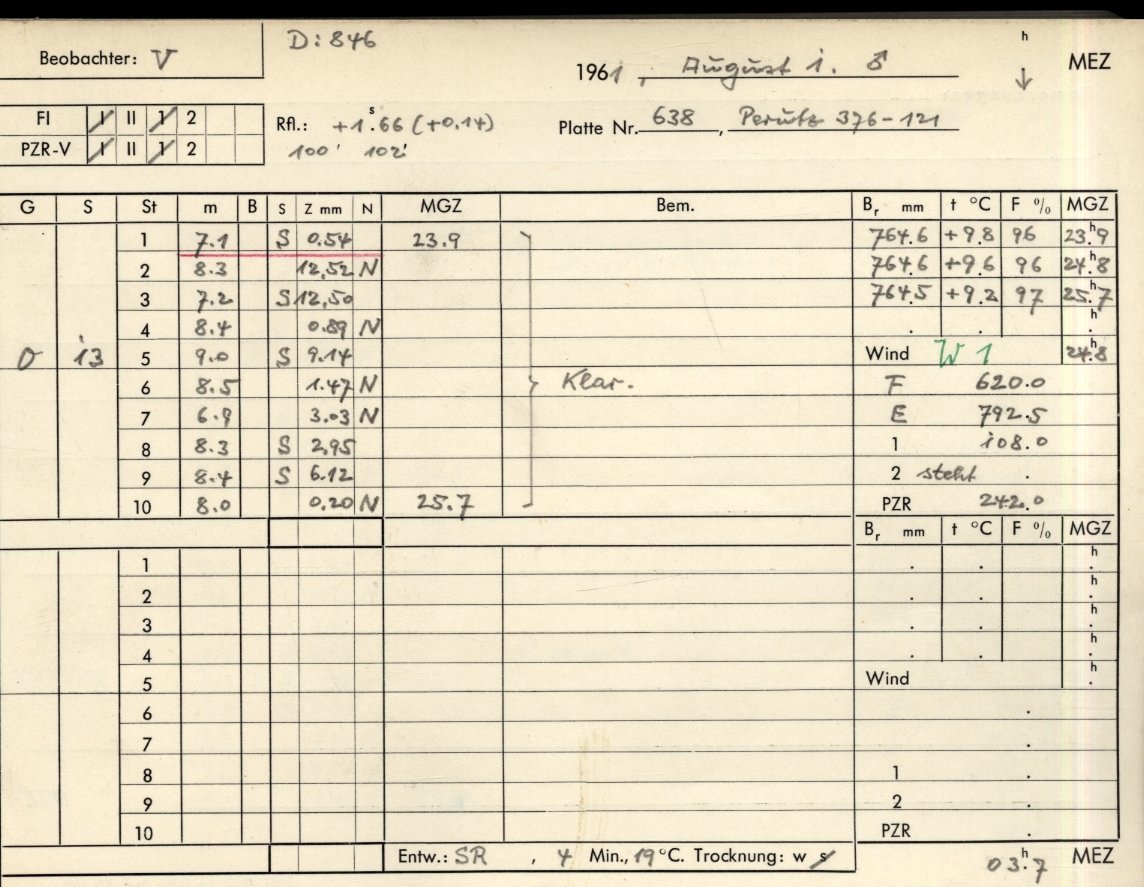 D: 846
Beobachter: V
1961, August 1. ♂
h
MEZ
FI I II 1 2
PZR-V I II 1 2
Rfl.: +1ˢ.66 (+0.14)
100' 102'
Platte Nr. 638, Perutz 376-121
G S St m B S Z mm N MGZ Bem. Bᵣ mm t °C F % MGZ
1 7.1 S 0.54 23.9 764.6 +9.8 96 23ʰ.9
2 8.3 12.52 N 764.6 +9.6 96 24ʰ.8
3 7.2 S 12.50 764.5 +9.2 97 25ʰ.7
4 8.4 0.89 N . . h.
0 13 5 9.0 S 9.14 Wind W 1 24ʰ.8
6 8.5 1.47 N Klar. F 620.0
7 6.9 3.03 N E 792.5
8 8.3 S 2.95 1 108.0
9 8.4 S 6.12 2 steht .
10 8.0 0.20 N 25.7 PZR 242.0
Bᵣ mm t °C F % MGZ
1 . . h.
2 . . h.
3 . . h.
4 . . h.
5 Wind h.
6 .
7 .
8 1 .
9 2 .
10 PZR .
Entw.: SR , 4 Min., 19 °C. Trocknung: w s
03ʰ.7 MEZ